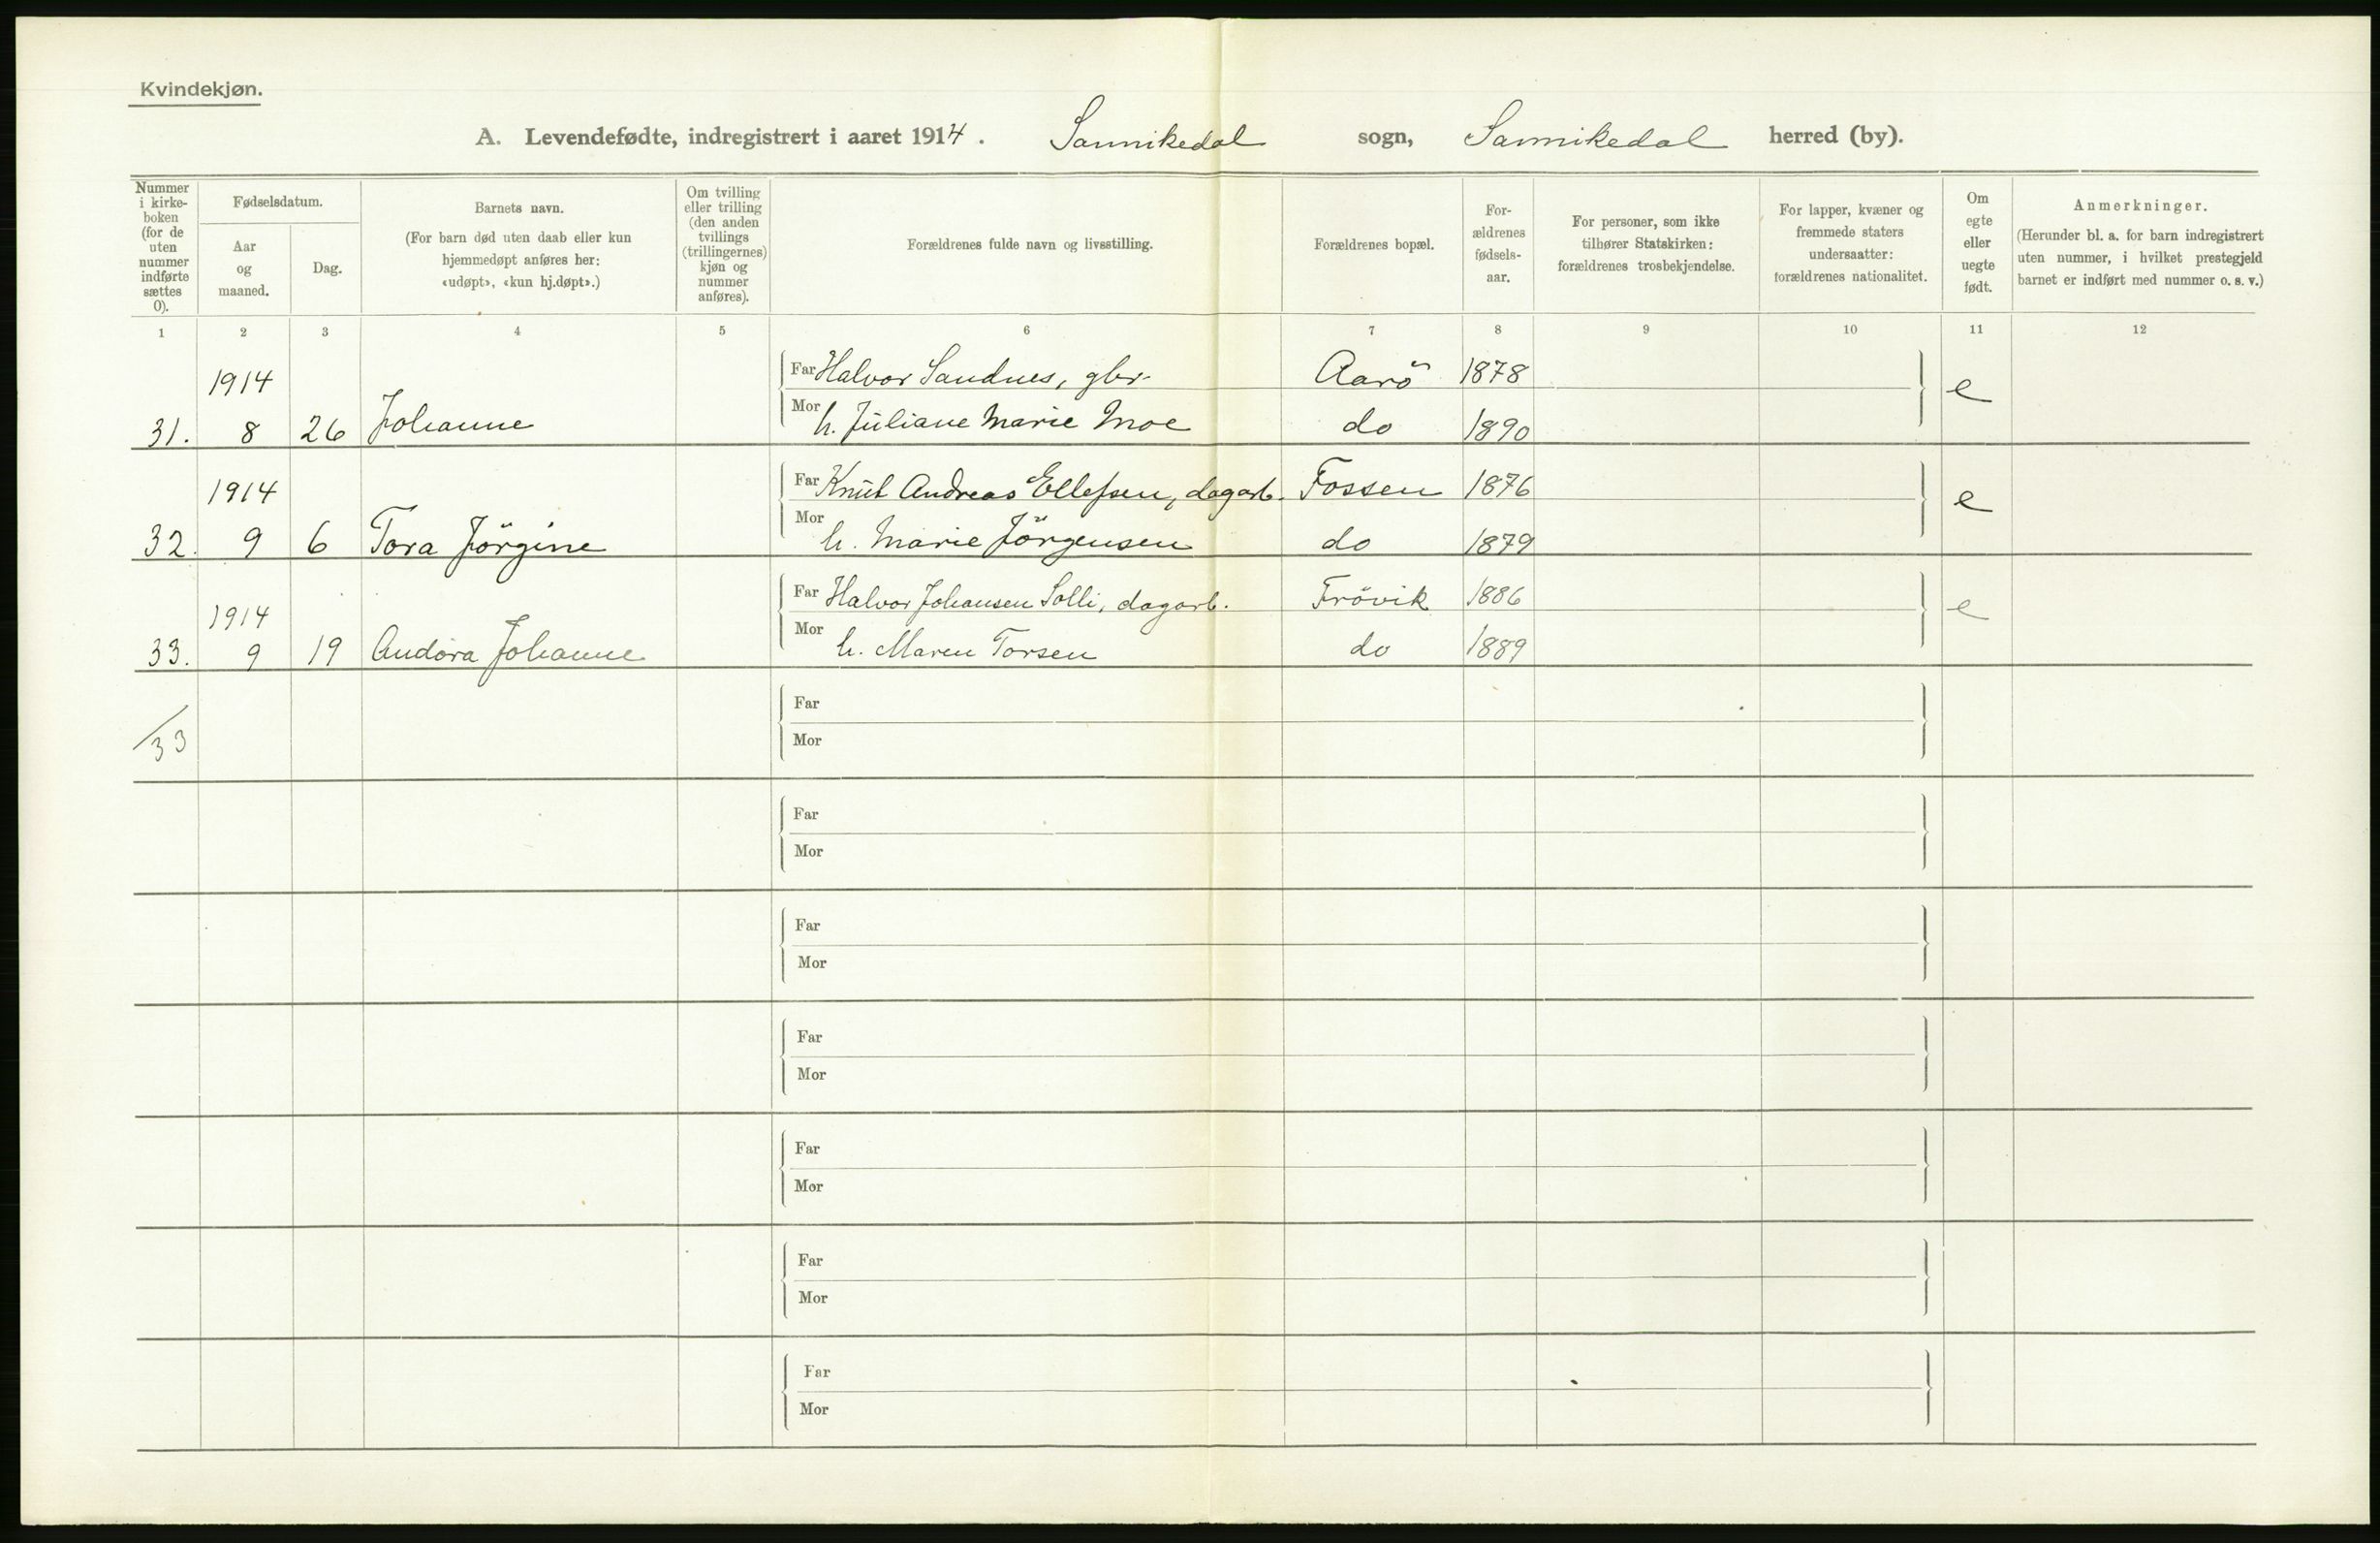 Kvindekjøn.
A. Levendefødte, indregistrert i aaret 1914. Sannikedal sogn, Sannikedal herred (by).
Nummer i kirke-boken (for de uten nummer indførte sættes 0).
Fødselsdatum.
Aar og maaned.
Dag.
Barnets navn.
(For barn død uten daab eller kun hjemmedøpt anføres her: «udøpt», «kun hj.døpt».)
Om tvilling eller trilling (den anden tvillings (trillingernes) kjøn og nummer anføres).
Forældrenes fulde navn og livsstilling.
Forældrenes bopæl.
For-ældrenes fødsels-aar.
For personer, som ikke tilhører Statskirken: forældrenes trosbekjendelse.
For lapper, kvæner og fremmede staters undersaatter: forældrenes nationalitet.
Om egte eller uegte født.
Anmerkninger.
(Herunder bl. a. for barn indregistrert uten nummer, i hvilket prestegjeld barnet er indført med nummer o. s. v.)
1 2 3 4 5 6 7 8 9 10 11 12
1914 Far Halvor Sandnes, gbr. Aarö 1878 e
31. 8 26 Johanne Mor h. Juliane Marie Moe do 1890
1914 Far Knut Andreas Ellefsen, dagarb. Fossen 1876 e
32. 9 6 Tora Jörgine Mor h. Marie Jörgensen do 1879
1914 Far Halvor Johansen Solli, dagarb. Frövik 1886 e
33. 9 19 Andora Johanne Mor h. Maren Torsen do 1889
Far
33
Mor
Far
Mor
Far
Mor
Far
Mor
Far
Mor
Far
Mor
Far
Mor